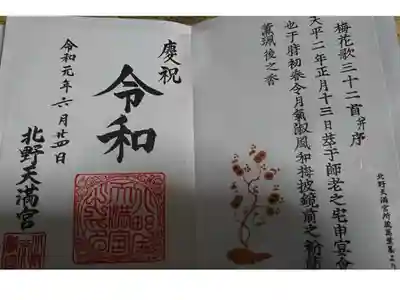 梅花歌三十二首并序
天平二年正月十三日萃于師老之宅申宴會
也于時初春令月氣淑風和梅披鏡前之
薫珮後之香
北野天満宮所蔵萬葉集より
慶祝
令和
令和元年六月廿四日
北野天満宮